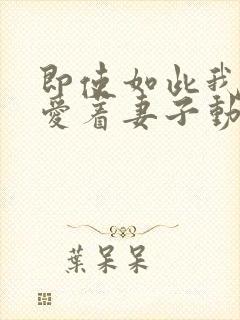 即使如此我
愛着妻子動
葉呆呆